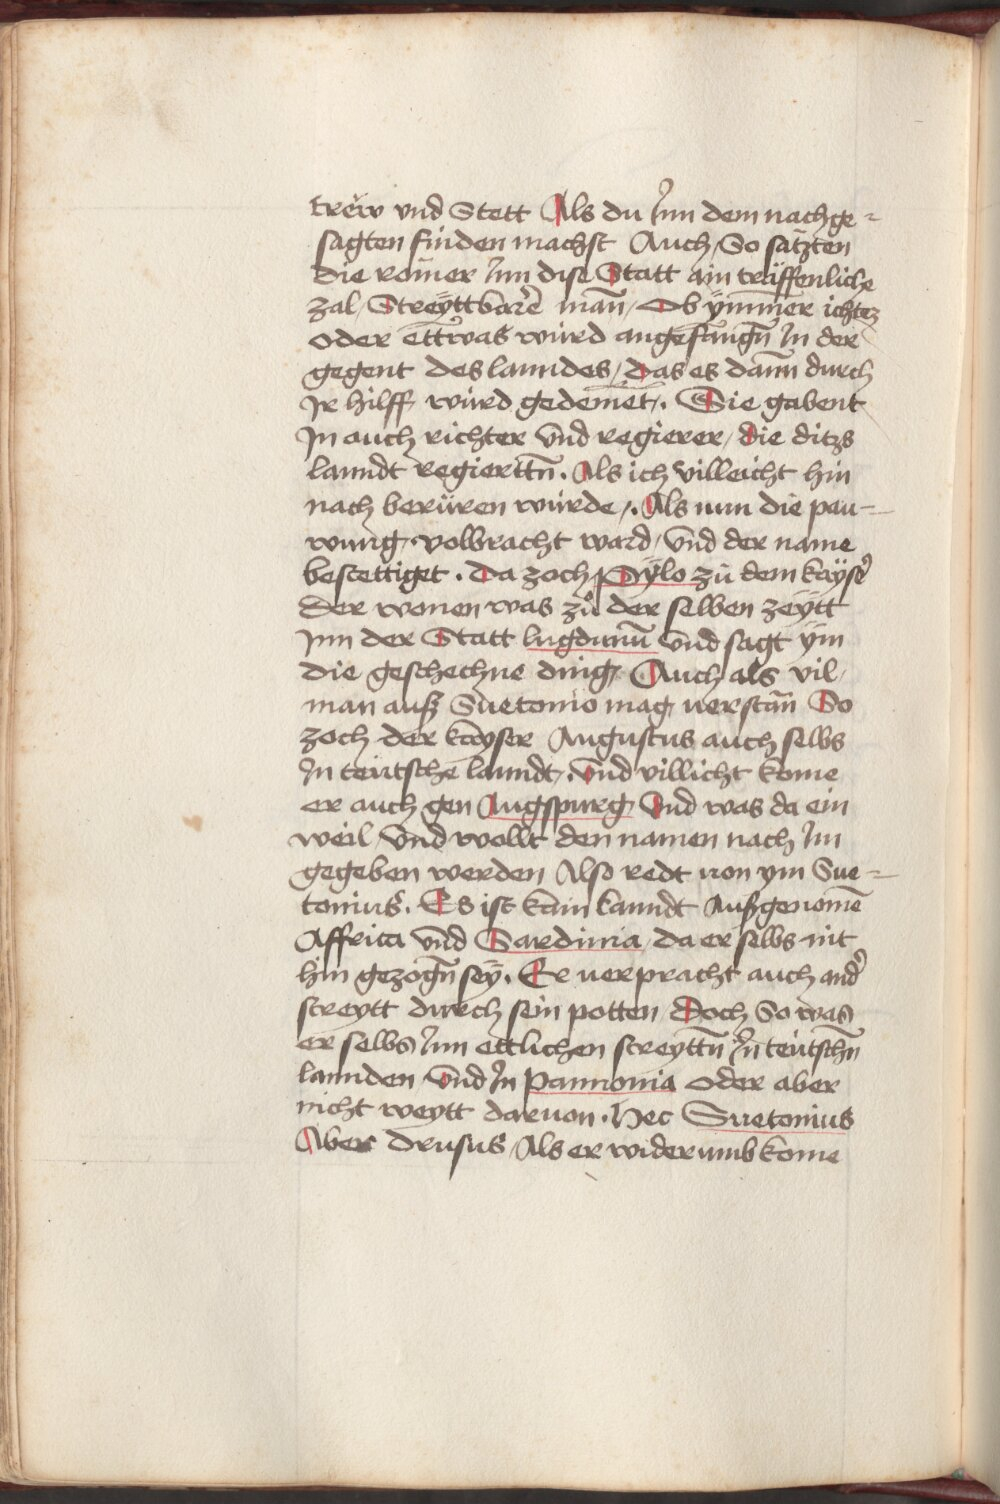 trew vnd Stett Als du Inn dem nachge-
sagten finden machst Auch So satzten
die römer Inn dise Statt ain träffenliche
zal Streyttbarē man̄ Ob ymmer ichtez
oder ettwas würd angefangn̄ In der
gegent des lanndes Das es dann durch
Ir hilff würd gedemet. Sie gabent
In auch richter vnd regierer die ditzs
lanndt regierttn̄. Als ich villeicht hin
nach berüren würde. Als nun die pau-
wung volbracht ward vnd der name
bestettiget. Da zoch Pÿlo zů dem kayser
der wonen was zů der selben zeÿtt
Inn der Statt lugdunū vnd sagt ÿm
die geschechne ding Auch als vil
man auß Suetonio mag uerstān So
zoch der kayser Augustus auch selbs
In teutsche lanndt. Vnd villicht kome
er auch gen Augspurg Vnd was da ein
weil vnd wollt den namen nach Im
gegeben werden Also redt uon ym Sue-
tonius. Es ist kain lanndt Außgenomē
Affrica vnd Sardinia da er selbs nit
hin gezogn̄ sey. Er uerpracht auch and̉
streytt durch sein potten Doch So was
er selbs Inn ettlichen streyttn̄ In teutschn̄
lannden vnd In Pannonia oder aber
nicht weytt daruon. Hec Suetonius
Aber Drusus Als er widerumb kome